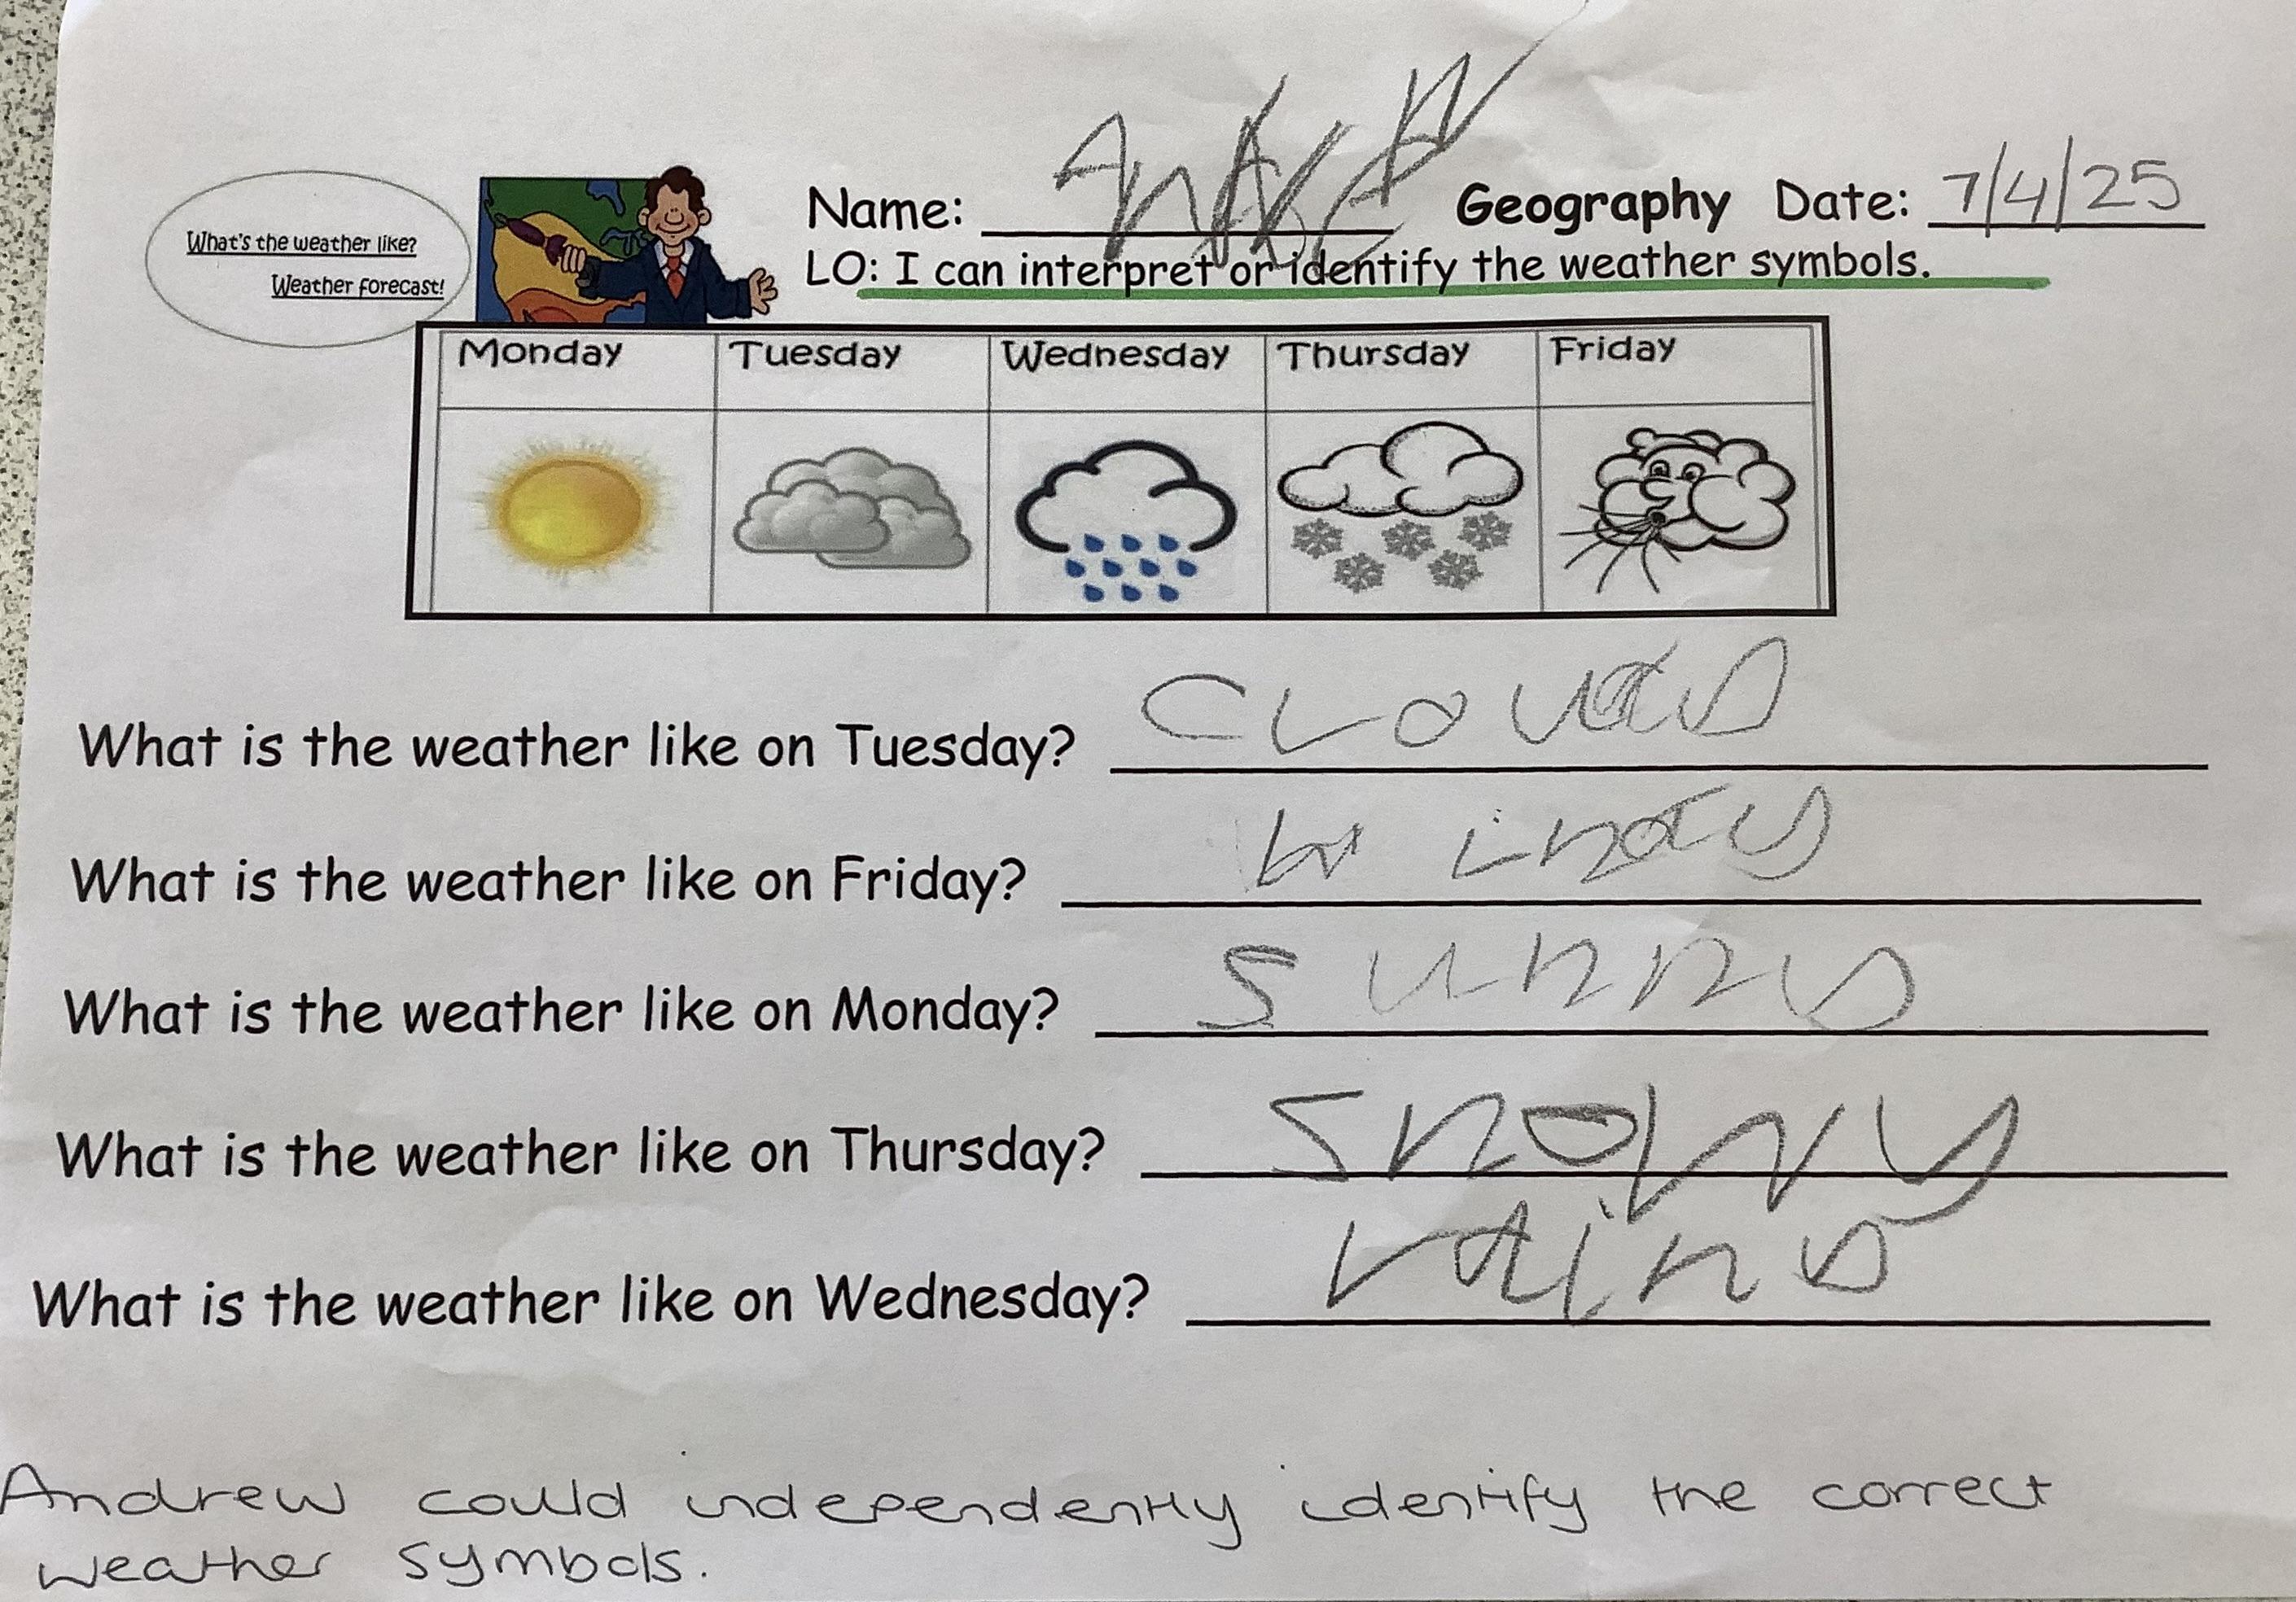 What's the weather like?
Weather forecast!
Name: Andrew Geography Date: 7/4/25
LO: I can interpret or identify the weather symbols.
Monday Tuesday Wednesday Thursday Friday
What is the weather like on Tuesday? cloudy
What is the weather like on Friday? windy
What is the weather like on Monday? sunny
What is the weather like on Thursday? snowy
What is the weather like on Wednesday? rainy
Andrew could independently identify the correct
weather symbols.